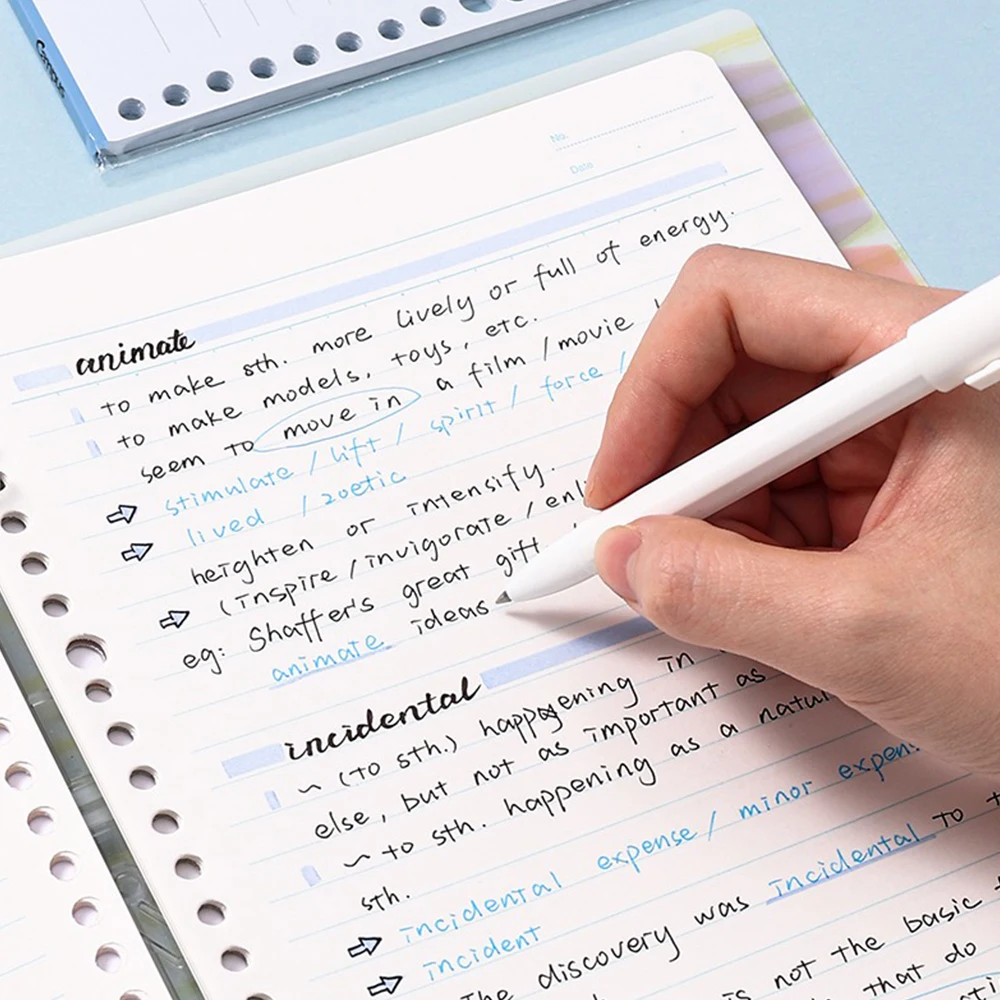 Campus
No.
Date
animate
to make sth. more lively or full of energy.
to make models, toys, etc.
seem to move in a film / movie
stimulate / lift / spirit / force /
lived / zoetic
heighten or intensify.
(inspire / invigorate / enli
eg: Shaffer's great gift
animate ideas
incidental
~ (to sth.) happening in
else, but not as important as
~ to sth. happening as a natu
sth.
incidental expense / minor expen
incident
The discovery was incidental to
is not the basic
that do